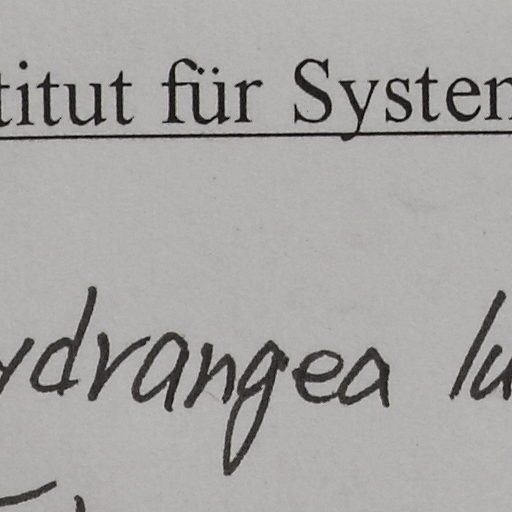 titut für System
ydrangea lu